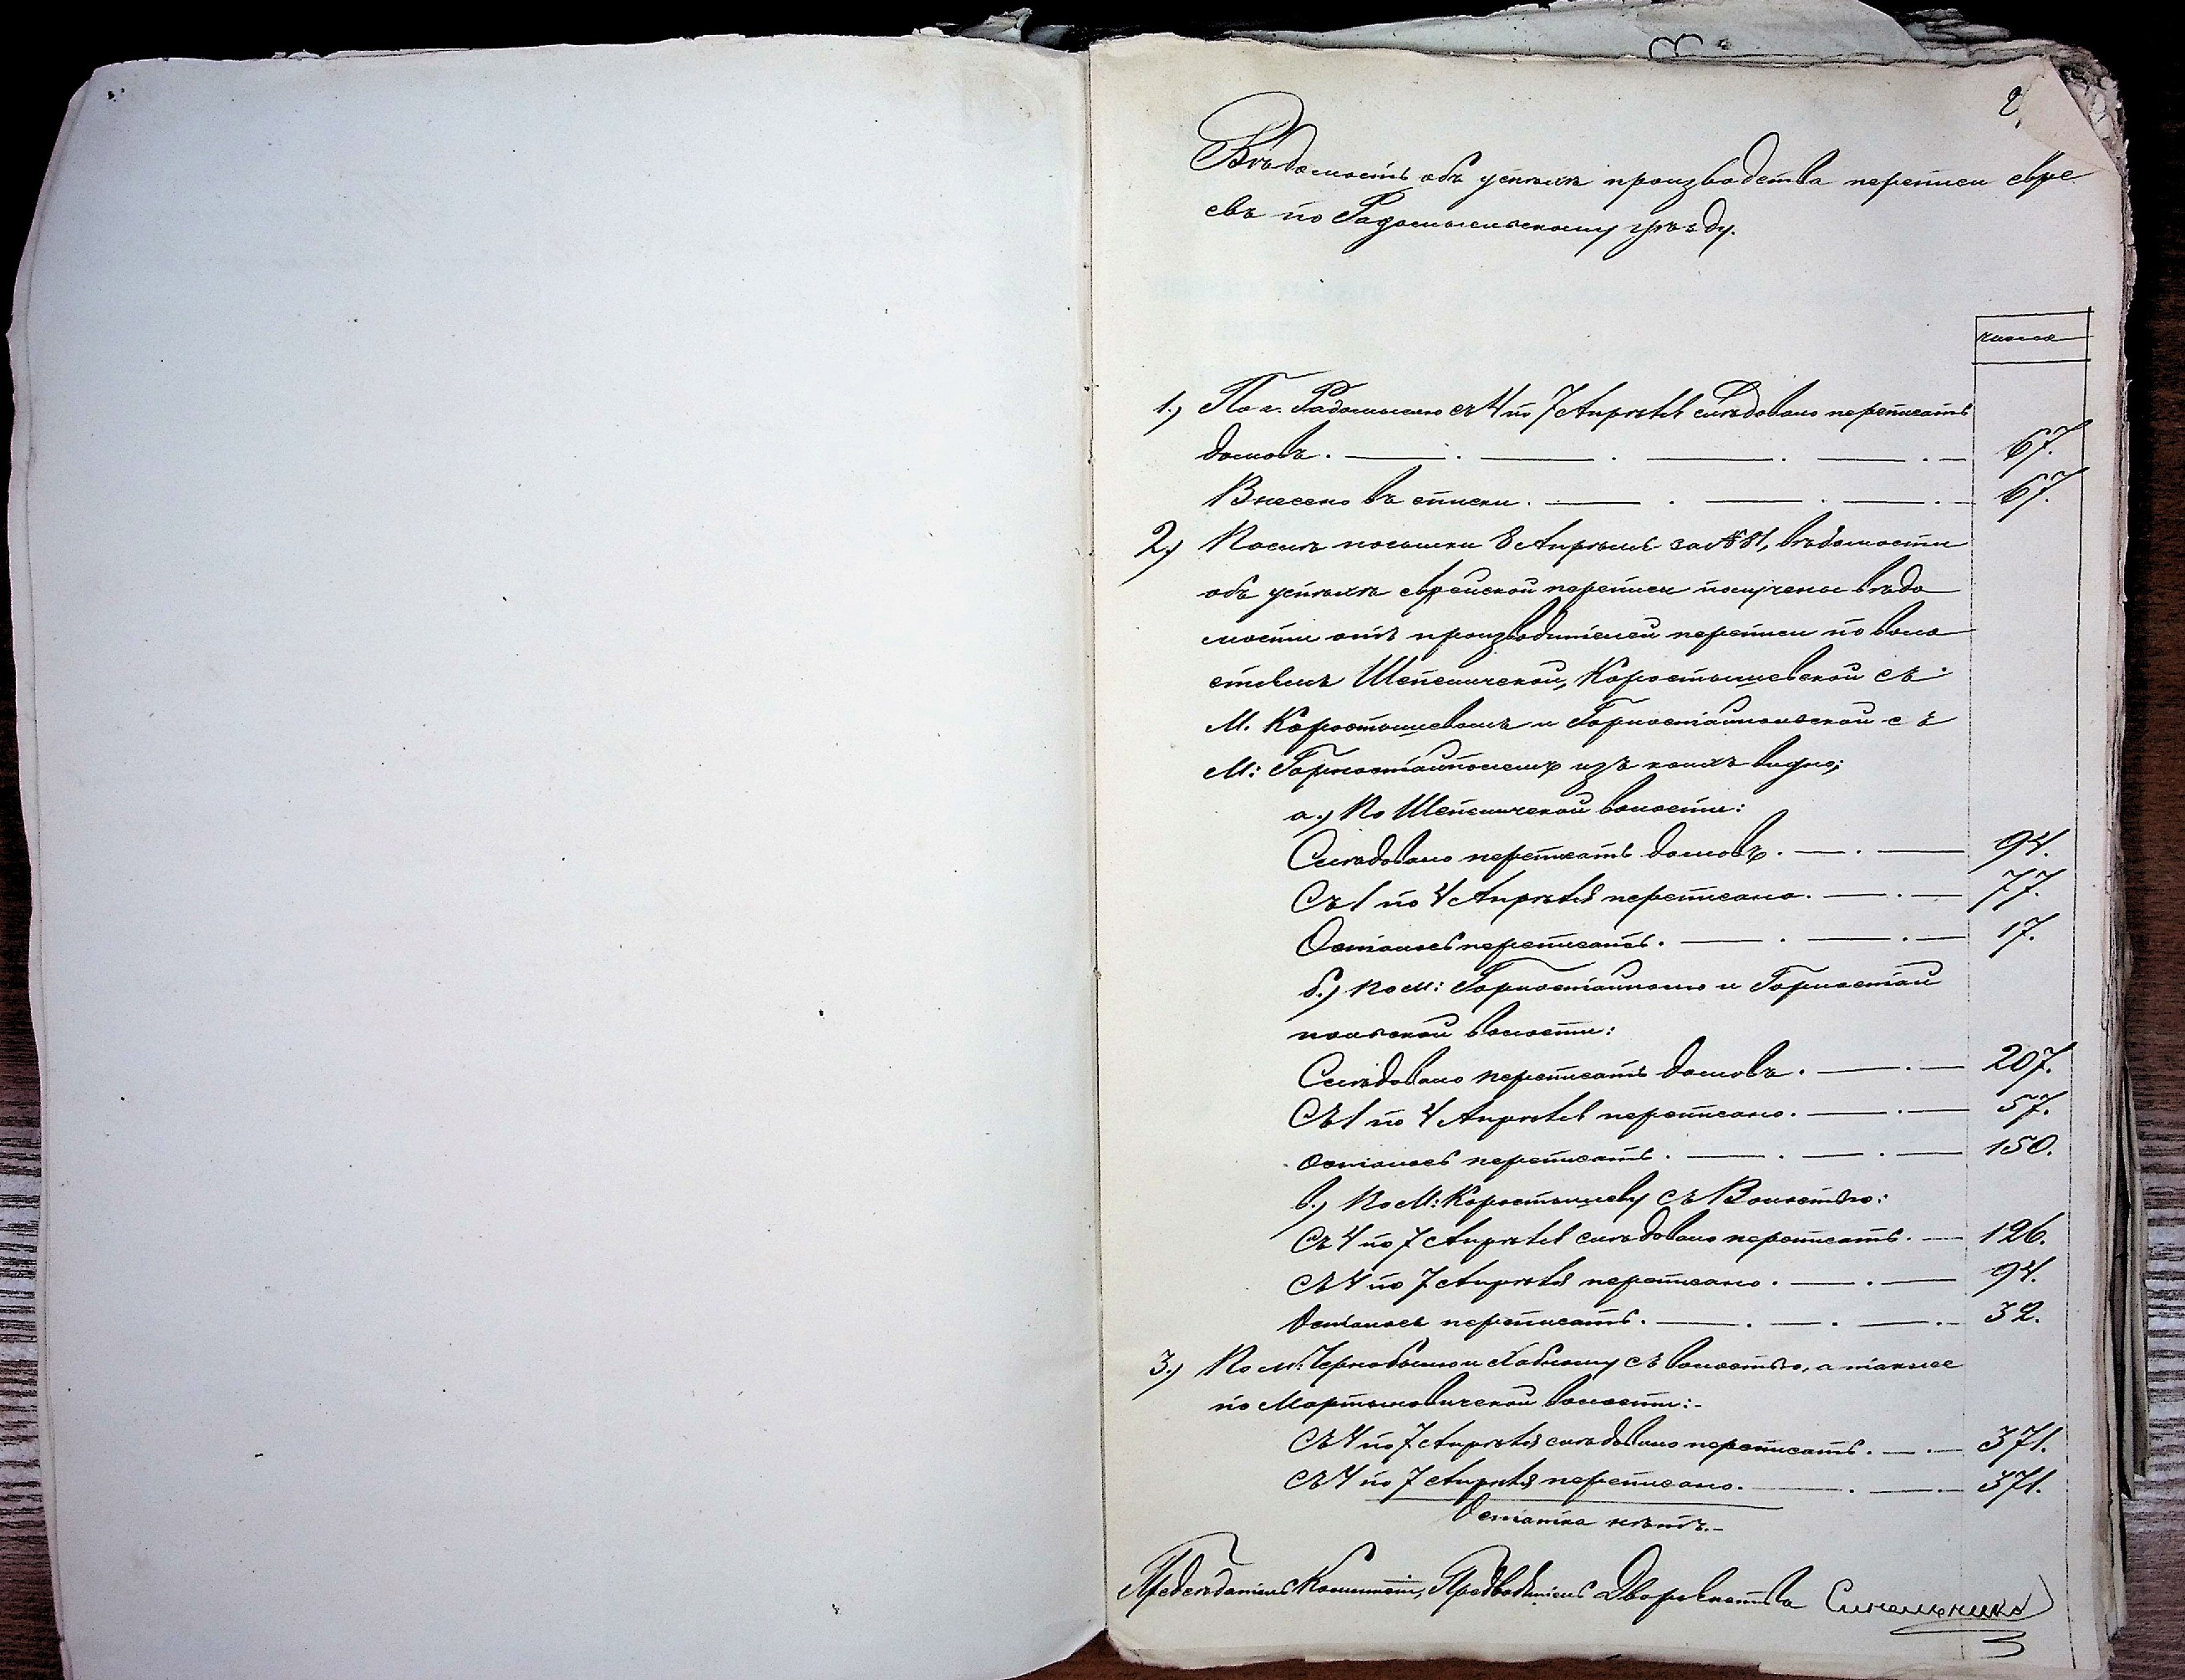 2
Вѣдомость объ успѣхѣ производства переписи евре
евъ по Радомысльскому уѣзду.
число
1.) По г. Радомыслю съ 4 по 7 Апрѣля слѣдовало переписать
домовъ . — . — . — . — . — 67.
Внесено въ списки . — . — . — . — 67.
2.) Послѣ посылки 8 Апрѣля за № 81, вѣдомости
объ успѣхѣ еврейской переписи получены вѣдо
мости отъ производителей переписи по воло
стямъ Шепеличской, Коростышевской съ
М. Коростышевомъ и Горностайпольской съ
М: Горностайполемъ изъ коихъ видно;
а.) По Шепеличской волости:
Слѣдовало переписать домовъ . — . — 94.
Съ 1 по 4 Апрѣля переписано . — . — 77.
Осталось переписать . — . — . — 17.
б.) По м: Горностайполю и Горностай
польской волости:
Слѣдовало переписать домовъ . — . — 207.
Съ 1 по 4 Апрѣля переписано . — . — 57.
Осталось переписать . — . — . — 150.
в.) По М: Коростышеву съ Волостью:
Съ 4 по 7 Апрѣля слѣдовало переписать . — 126.
Съ 4 по 7 Апрѣля переписано . — . — 94.
Осталось переписать . — . — . — . — 32.
3.) По м: Чернобылю и Хабному съ волостью, а также
по Мартыновичской волости:-
Съ 4 по 7 Апрѣля слѣдовало переписать . — . — 371.
Съ 4 по 7 Апрѣля переписано . — . — . — 371.
Остатка нѣтъ.-
Предсѣдатель Комиссіи, Предводитель Дворянства